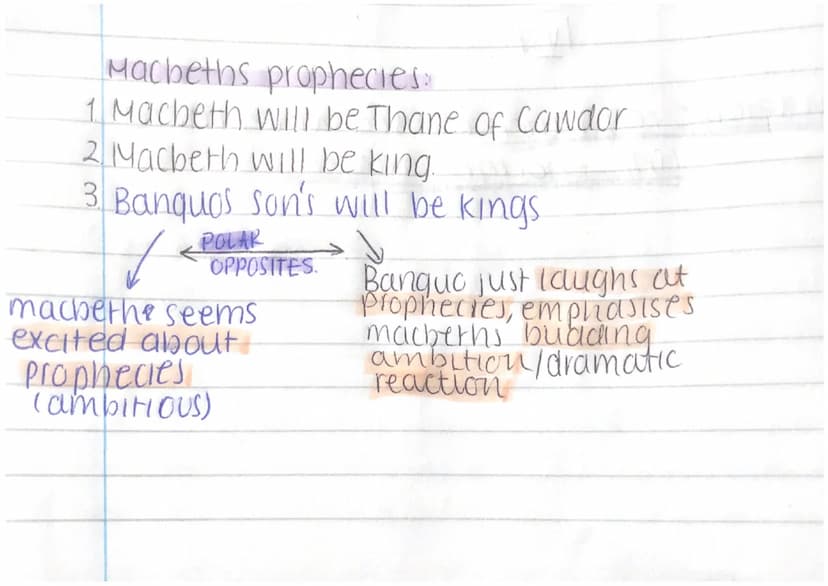 Macbeths prophecies:
1. Macbeth will be Thane of Cawdor
2. Macbeth will be king.
3. Banquos son's will be kings
POLAR
OPPOSITES.
macbeth seems
excited about
prophecies
(ambitious)
Banquo just laughs at
prophecies, emphasises
macbeths budding
ambition/dramatic
reaction